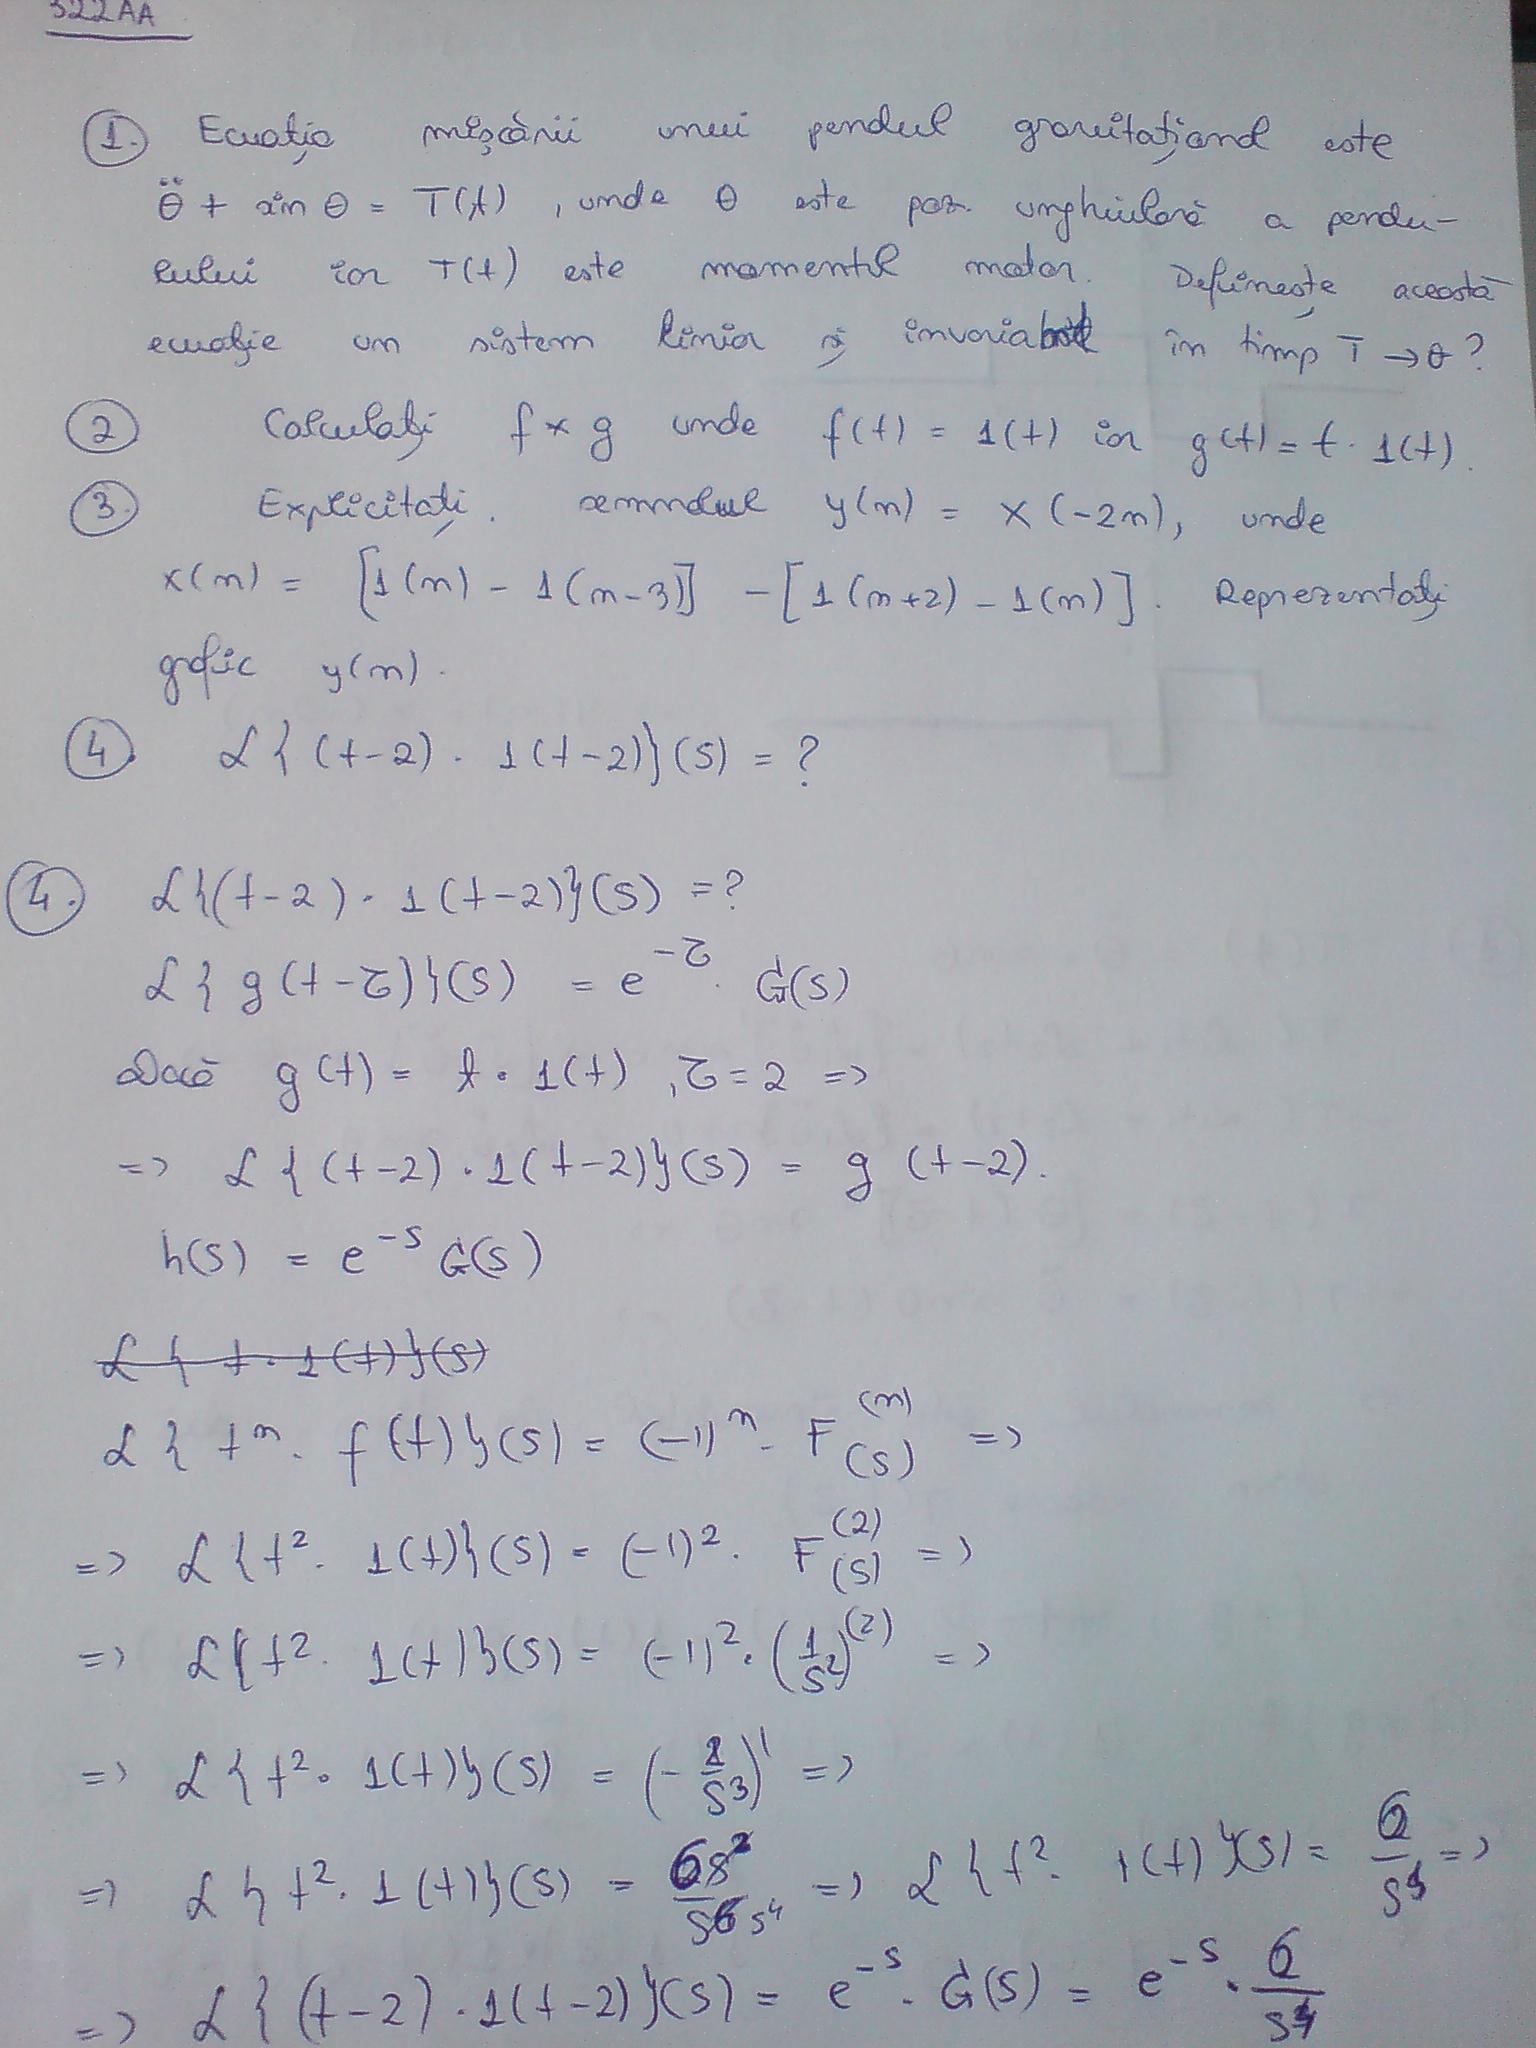 322AA
1. Ecuația mișcării unui pendul gravitațional este
θ̈ + sin θ = T(t), unde θ este poz. unghiulară a pendu-
lului iar T(t) este momentul motor. Definește această
ecuație un sistem liniar și invariabil în timp T → θ?
2 Calculați f * g unde f(t) = 1(t) iar g(t) = t · 1(t).
3. Explicitați semnalul y(n) = x(-2n), unde
x(n) = [1(n) - 1(n-3)] - [1(n+2) - 1(n)]. Reprezentați
grafic y(n).
4. L{(t-2) · 1(t-2)}(s) = ?
4. L{(t-2) · 1(t-2)}(s) = ?
L{g(t-τ)}(s) = e^-τ · G(s)
Dacă g(t) = t · 1(t), τ = 2 =>
=> L{(t-2) · 1(t-2)}(s) = g(t-2).
h(s) = e^-s G(s)
L{t · 1(t)}(s)
L{t^n · f(t)}(s) = (-1)^n · F^(n)(s) =>
=> L{t² · 1(t)}(s) = (-1)² · F^(2)(s) =>
=> L{t² · 1(t)}(s) = (-1)² · (1/s²)^(2) =>
=> L{t² · 1(t)}(s) = (-2/s³)' =>
=> L{t² · 1(t)}(s) = 6s²/s⁶ s⁴ => L{t² · 1(t)}(s) = 6/s⁴ =>
=> L{(t-2) · 1(t-2)}(s) = e^-s · G(s) = e^-s · 6/s⁴